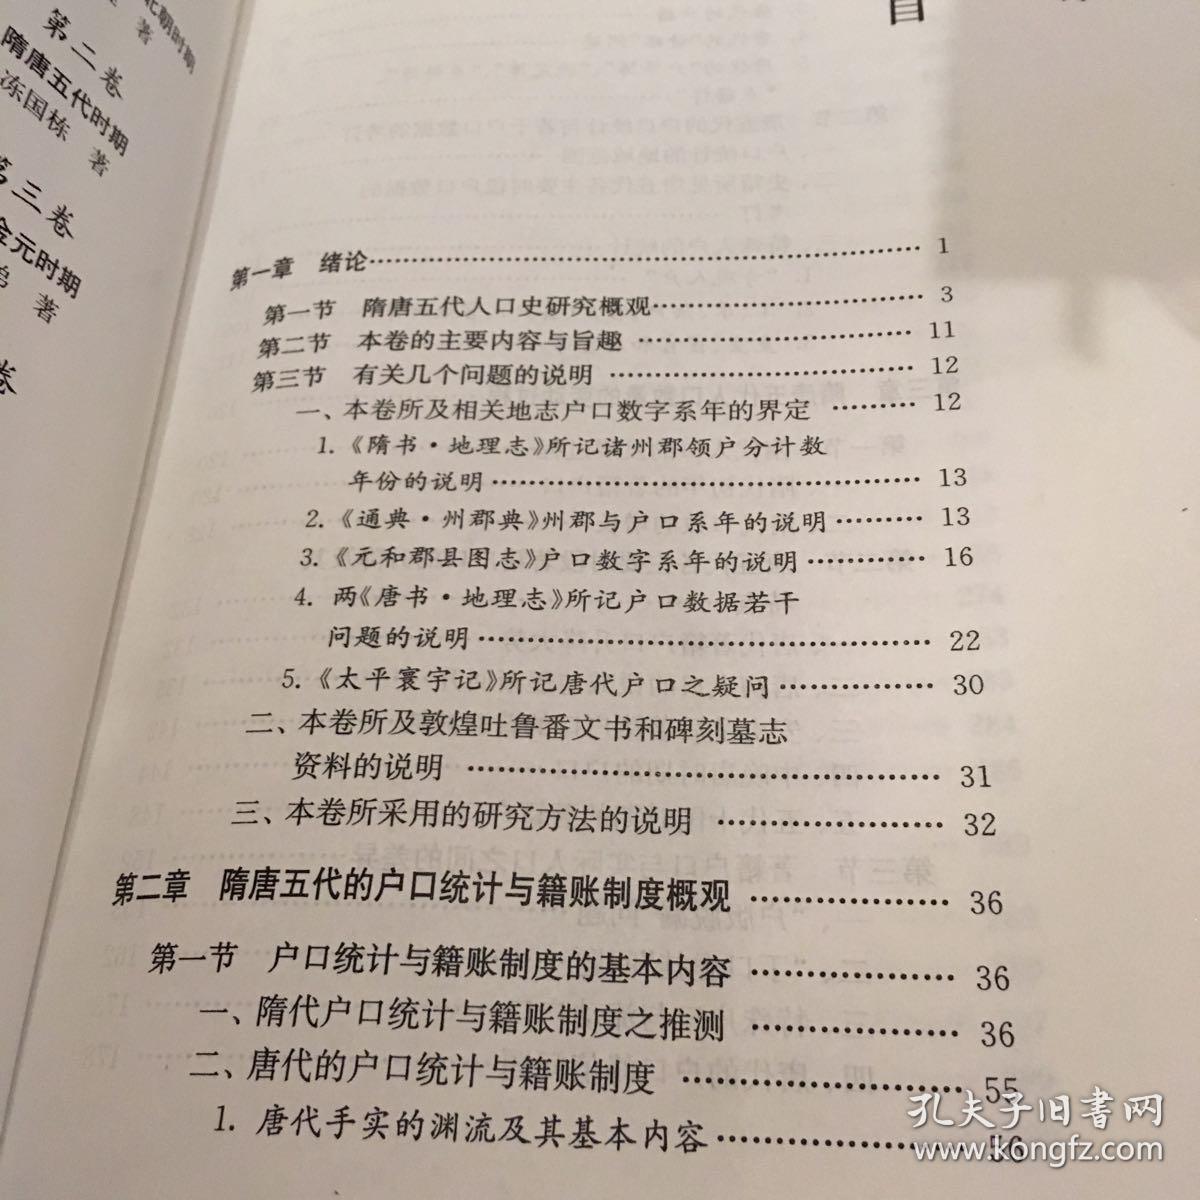 北朝时期
著
第二卷
隋唐五代时期
冻国栋 著
第三卷
金元时期
著
卷
目
第一章 绪论 1
第一节 隋唐五代人口史研究概观 3
第二节 本卷的主要内容与旨趣 11
第三节 有关几个问题的说明 12
一、本卷所及相关地志户口数字系年的界定 12
1.《隋书·地理志》所记诸州郡领户分计数
年份的说明 13
2.《通典·州郡典》州郡与户口系年的说明 13
3.《元和郡县图志》户口数字系年的说明 16
4. 两《唐书·地理志》所记户口数据若干
问题的说明 22
5.《太平寰宇记》所记唐代户口之疑问 30
二、本卷所及敦煌吐鲁番文书和碑刻墓志
资料的说明 31
三、本卷所采用的研究方法的说明 32
第二章 隋唐五代的户口统计与籍账制度概观 36
第一节 户口统计与籍账制度的基本内容 36
一、隋代户口统计与籍账制度之推测 36
二、唐代的户口统计与籍账制度 55
1. 唐代手实的渊流及其基本内容 56
孔夫子旧书网
www.kongfz.com